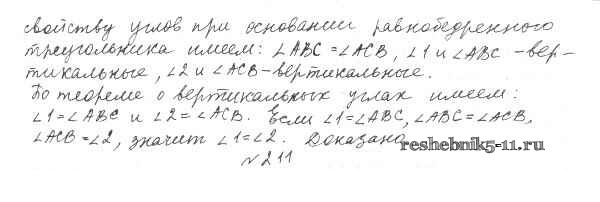 свойству углов при основании равнобедренного
треугольника имеем: ∠ABC=∠ACB, ∠1 и ∠ABC -вер-
тикальные, ∠2 и ∠ACB-вертикальные.
По теореме о вертикальных углах имеем:
∠1=∠ABC и ∠2=∠ACB. Если ∠1=∠ABC, ∠ABC=∠ACB,
∠ACB=∠2, значит ∠1=∠2. Доказано
reshebnik5-11.ru
№211